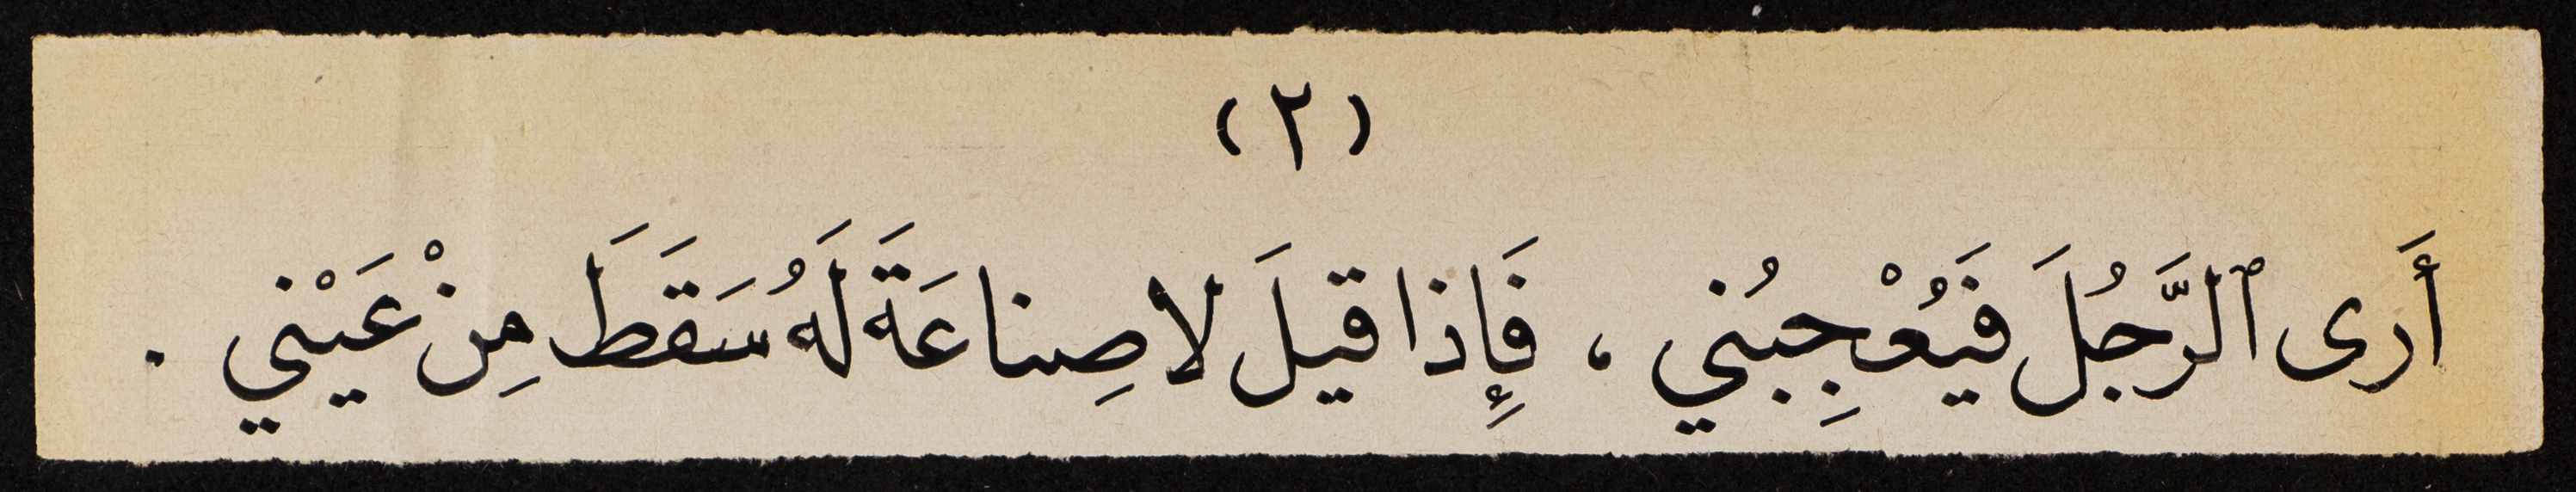 (٢)
أَرى ٱلرَّجُلَ فَيُعْجِبُني ، فَإِذا قيلَ لا صِناعَةَ لَهُ سَقَطَ مِنْ عَيْني .